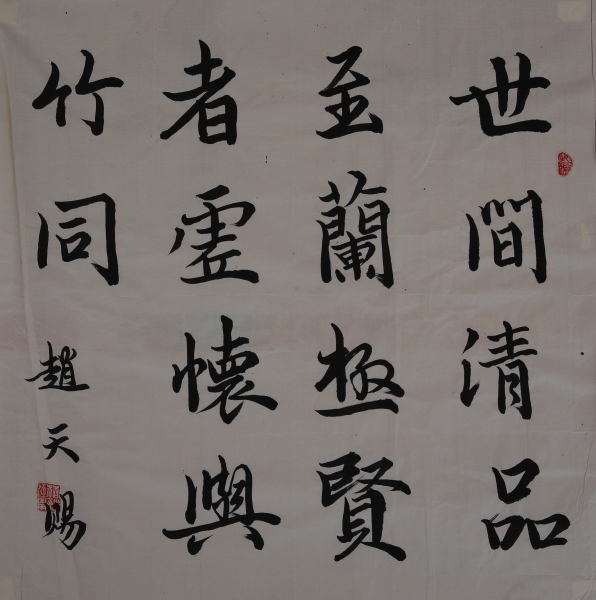 世間清品
至蘭極賢
者虛懷與
竹同
趙天賜